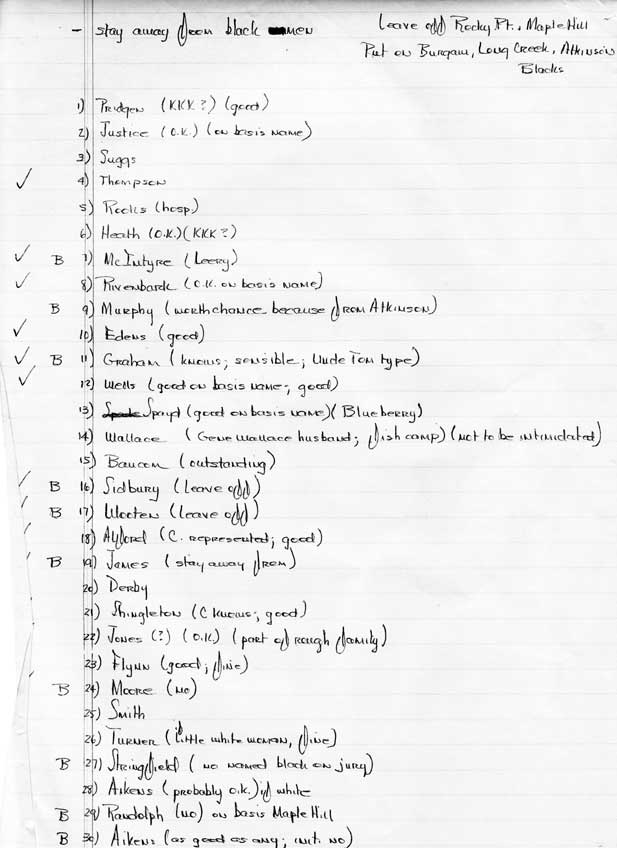 - stay away from black men
Leave off Rocky Pt., Maple Hill
Put on Burgaw, Long Creek, Atkinson
Blacks
1) Pridgen (KKK?) (good)
2) Justice (O.K.) (on basis name)
3) Suggs
✓ 4) Thompson
5) Rooks (hosp.)
6) Heath (O.K.) (KKK?)
✓ B 7) McIntyre (Leery)
✓ 8) Rivenbark (O.K. on basis name)
B 9) Murphy (worth chance because from Atkinson)
✓ 10) Edens (good)
✓ B 11) Graham (knows; sensible; Uncle Tom type)
✓ 12) Wells (good on basis name; good)
13) Spayd (good on basis name) (Blueberry)
14) Wallace (Gene Wallace husband; fish camp) (not to be intimidated)
15) Baucom (outstanding)
B 16) Sidbury (leave off)
B 17) Wooten (leave off)
18) Ayford (C. represented; good)
B 19) James (stay away from)
20) Derby
21) Shingleton (C knows; good)
22) Jones (?) (O.K.) (part of rough family)
23) Flynn (good; fine)
B 24) Moore (no)
25) Smith
26) Turner (little white woman, fine)
B 27) Stringfield (no named black on jury)
28) Aikens (probably o.k.) if white
B 29) Randolph (no) on basis Maple Hill
B 30) Aikens (as good as any; no)